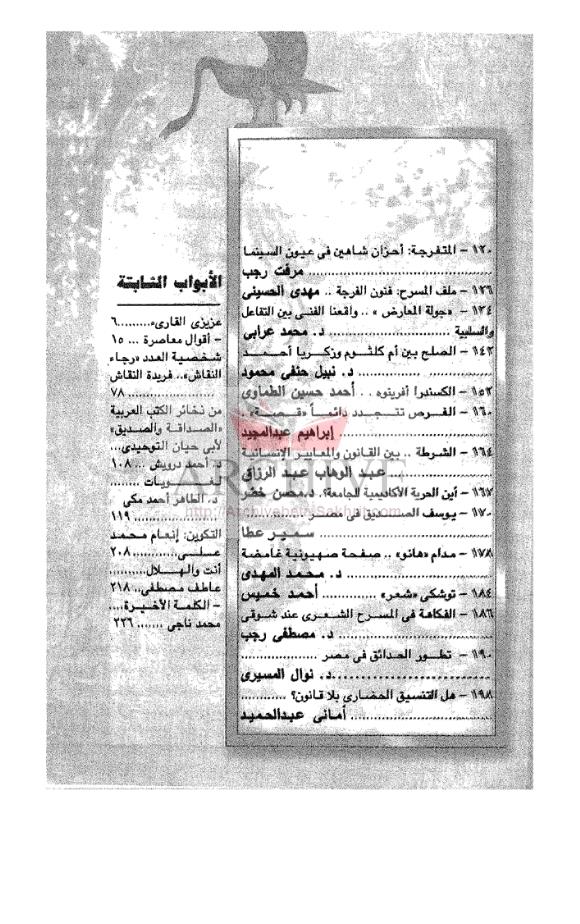 ١٢٠ – المتفرجة: أحزان شاهين فى عيون السينما
.......... مرفت رجب
١٢٦ – ملف المسرح: فنون الفرجة .. مهدى الحسينى
١٣٤ – «جولة المعارض» .. واقعنا الفنى بين التفاعل
والسلبية .......... د. محمد عرابى
١٤٢ – الصلح بين أم كلثوم وزكريا أحمد
.......... د. نبيل حنفى محمود
١٥٢ – الكسندرا أفرينوه .. أحمد حسين الطماوى
١٦٠ – الفرص تتجدد دائماً «قصة» .
.......... إبراهيم عبدالمجيد
١٦٤ – الشرطة .. بين القانون والمعايير الإنسانية
.......... عبد الوهاب عبد الرزاق
١٦٧ – أين الحرية الأكاديمية للجامعة؟. د.محسن خضر
١٧٠ – يوسف الصديق فى مصر
.......... سمير عطا
١٧٨ – مدام «هانو» .. صفحة صهيونية غامضة
.......... د. محمد المهدى
١٨٤ – توشكى «شعر» .......... أحمد خميس
١٨٦ – الفكاهة فى المسرح الشعرى عند شوقى
.......... د. مصطفى رجب
١٩٠ – تطور الحدائق فى مصر ..........
.......... د. نوال المسيرى
١٩٨ – هل التنسيق الحضارى بلا قانون؟ ..........
.......... أمانى عبدالحميد
الأبواب الثابتة
عزيزى القارىء.........٦
– أقوال معاصرة ... ١٥
شخصية العدد «رجاء
النقاش».. فريدة النقاش
.......... ٧٨
من ذخائر الكتب العربية
«الصداقة والصديق»
لأبى حيان التوحيدى...
د. أحمد درويش ... ١٠٨
لغويات ..........
د. الطاهر أحمد مكى
.......... ١١٩
التكوين: إنعام محمد
على.......... ٢٠٨
أنت والهلال..........
عاطف مصطفى.. ٢١٨
– الكلمة الأخيرة....
محمد ناجى ....... ٢٢٦
ARCHIVE
http://Archivebeta.Sakhrit.com